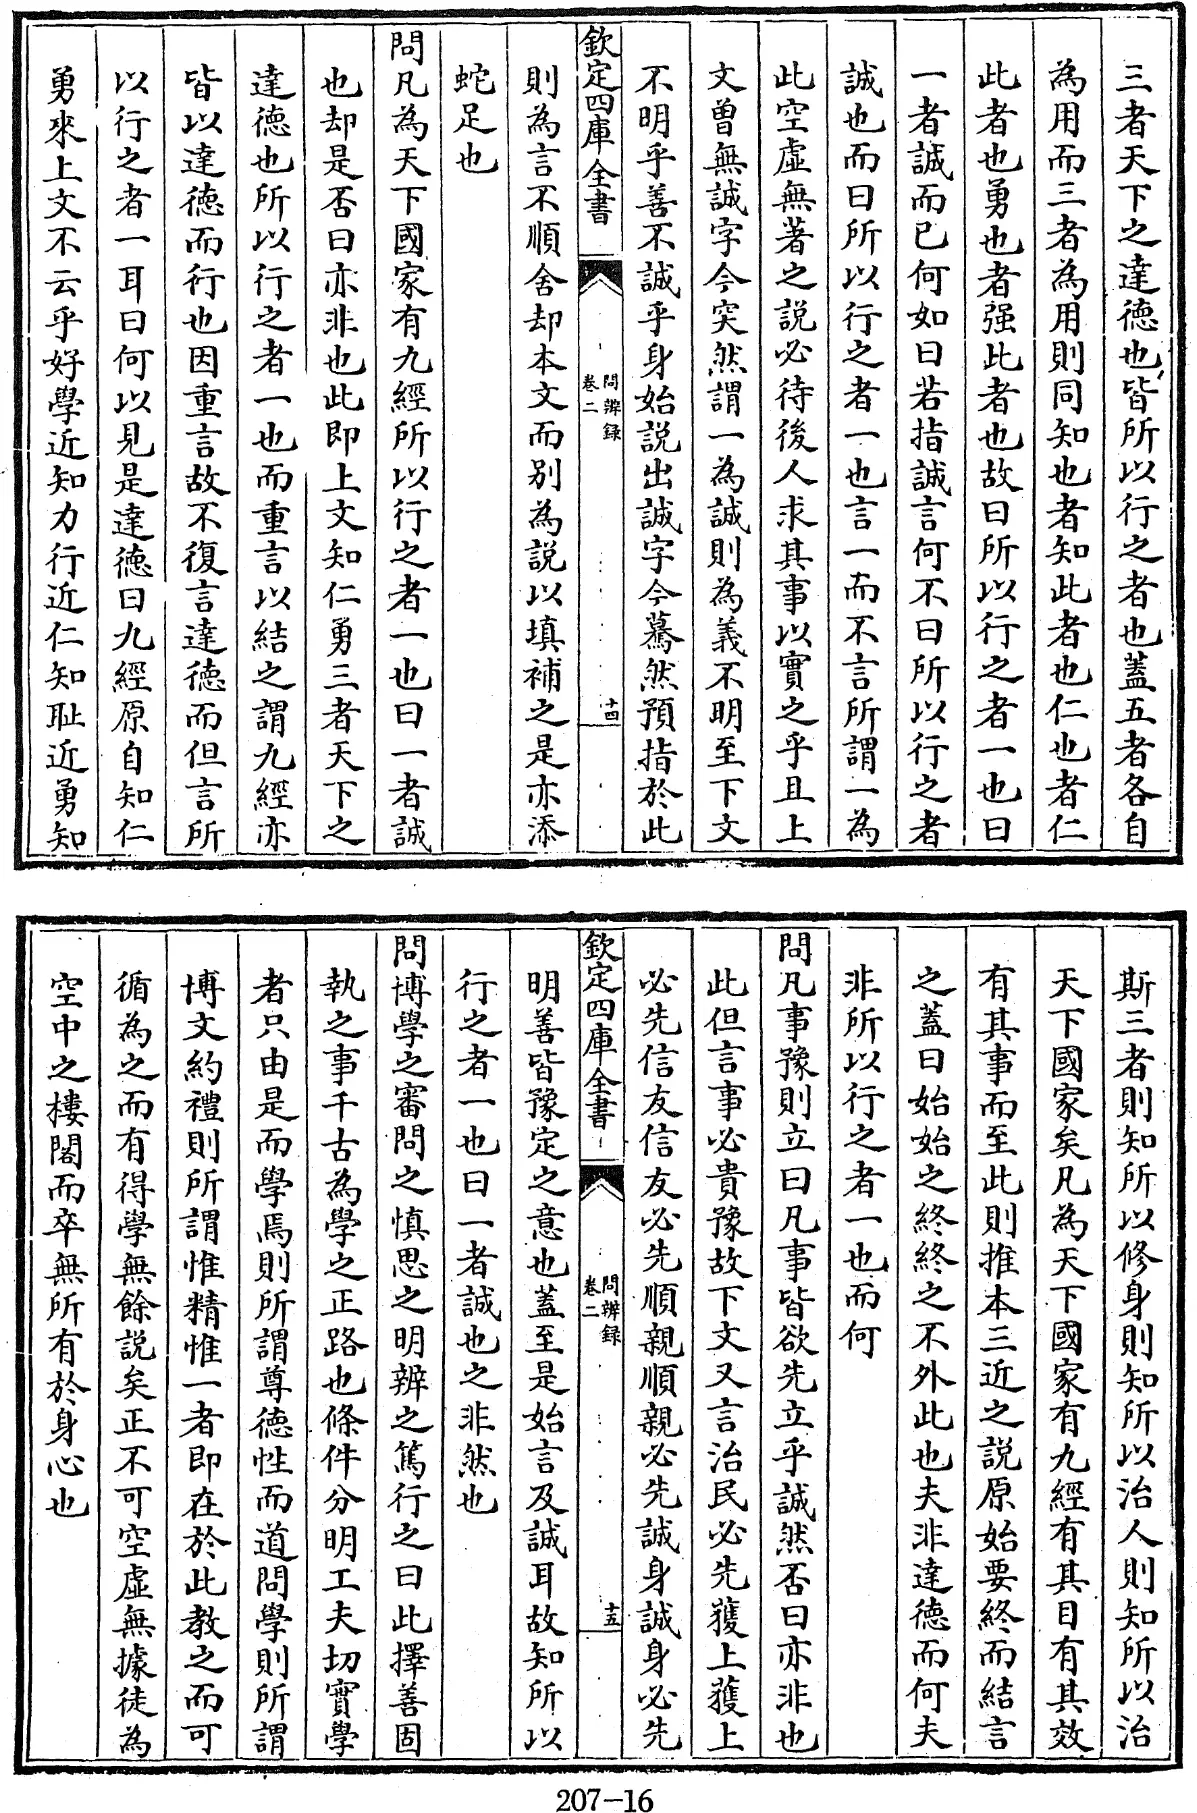 三者天下之達德也皆所以行之者也蓋五者各自
為用而三者為用則同知也者知此者也仁也者仁
此者也勇也者强此者也故曰所以行之者一也曰
一者誠而已何如曰若指誠言何不曰所以行之者
誠也而曰所以行之者一也言一而不言所謂一為
此空虛無著之説必待後人求其事以實之乎且上
文曽無誠字今突然謂一為誠則為義不明至下文
不明乎善不誠乎身始説出誠字今驀然預指於此
欽定四庫全書
問辨録
卷二
十四
則為言不順舍却本文而别為説以填補之是亦添
蛇足也
問凡為天下國家有九經所以行之者一也曰一者誠
也却是否曰亦非也此即上文知仁勇三者天下之
達德也所以行之者一也而重言以結之謂九經亦
皆以達德而行也因重言故不復言達德而但言所
以行之者一耳曰何以見是達德曰九經原自知仁
勇來上文不云乎好學近知力行近仁知恥近勇知
斯三者則知所以修身則知所以治人則知所以治
天下國家矣凡為天下國家有九經有其目有其效
有其事而至此則推本三近之説原始要終而結言
之蓋曰始始之終終之不外此也夫非達德而何夫
非所以行之者一也而何
問凡事豫則立曰凡事皆欲先立乎誠然否曰亦非也
此但言事必貴豫故下文又言治民必先獲上獲上
必先信友信友必先順親順親必先誠身誠身必先
欽定四庫全書
問辨録
卷二
十五
明善皆豫定之意也蓋至是始言及誠耳故知所以
行之者一也曰一者誠也之非然也
問博學之審問之慎思之明辨之篤行之曰此擇善固
執之事千古為學之正路也條件分明工夫切實學
者只由是而學焉則所謂尊德性而道問學則所謂
博文約禮則所謂惟精惟一者即在於此教之而可
循為之而有得學無餘説矣正不可空虛無據徒為
空中之樓閣而卒無所有於身心也
207-16